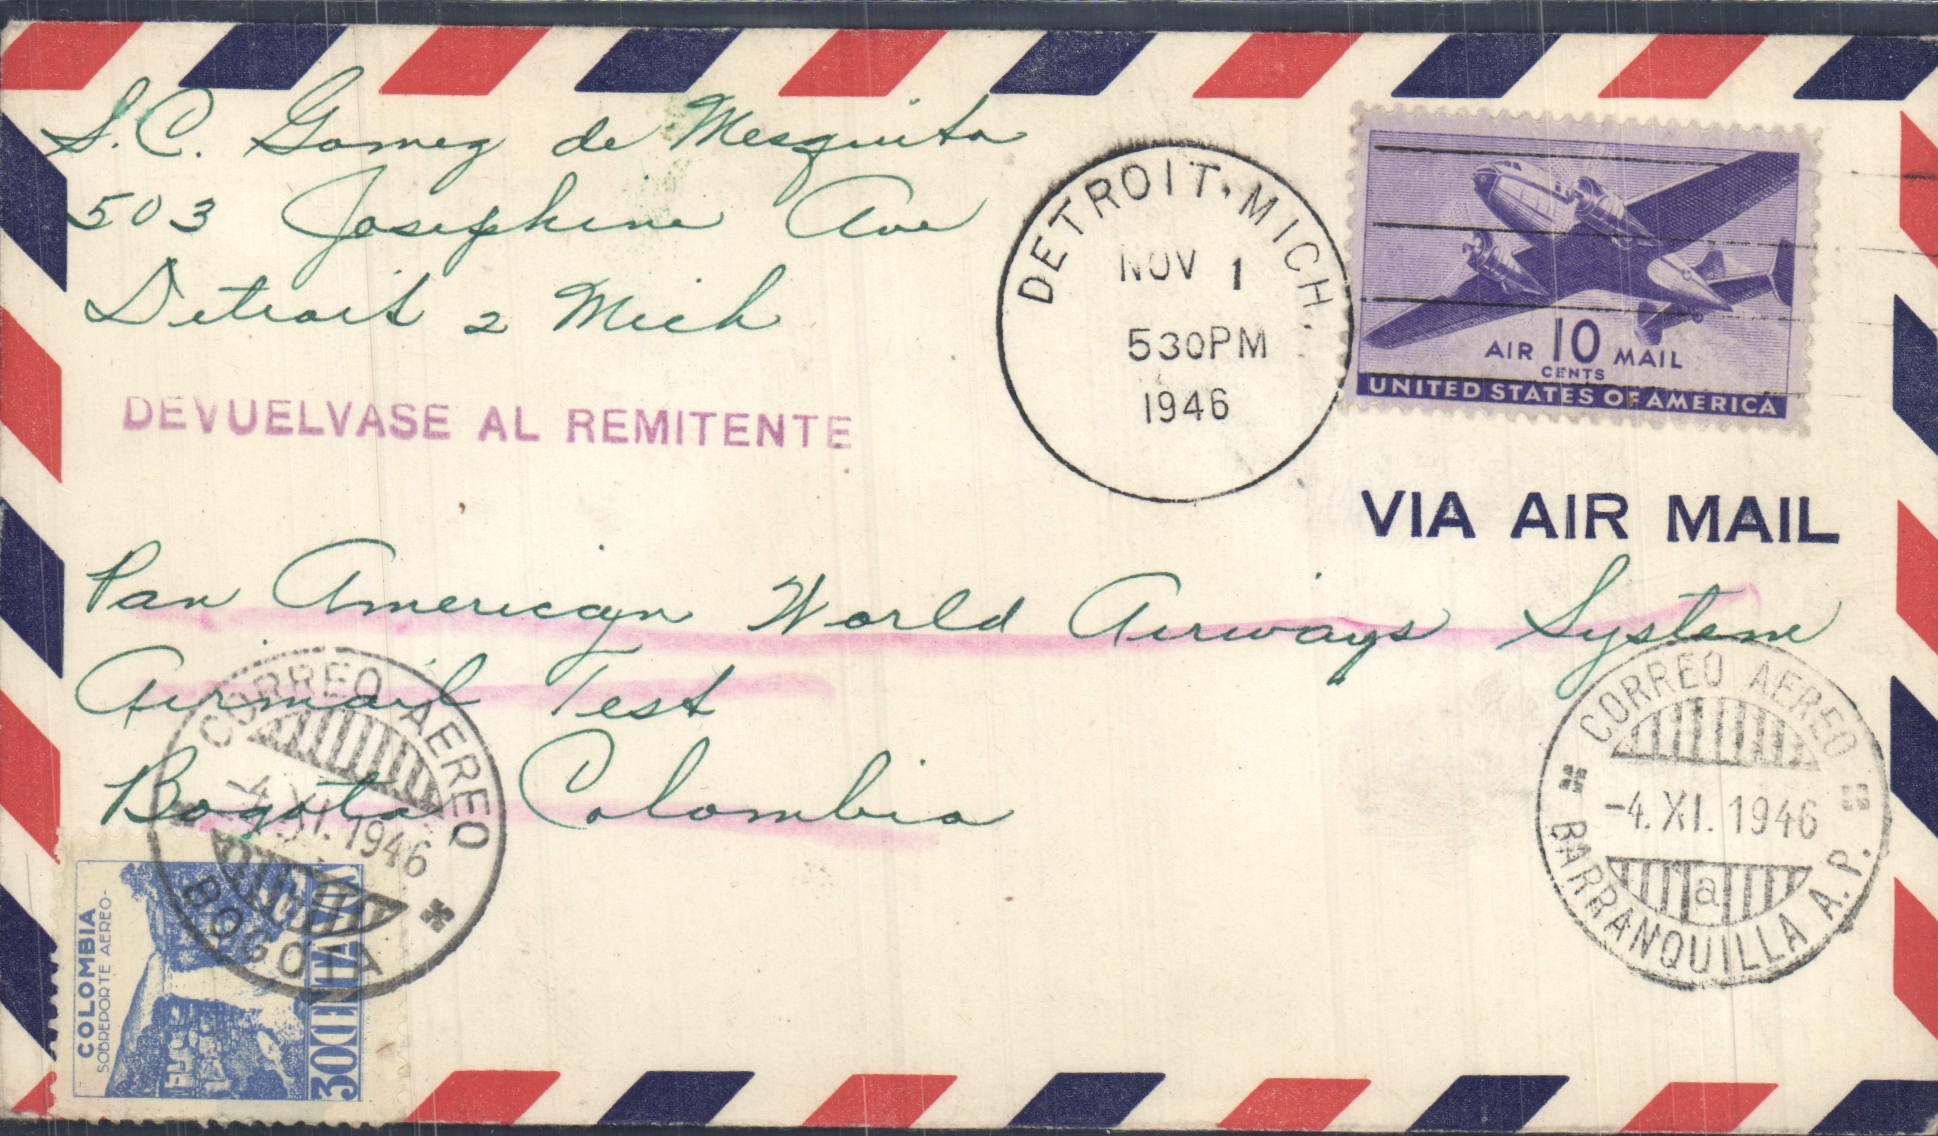 S.C. Gomez de Mesquita
503 Josephine Ave
Detroit 2 Mich
DETROIT, MICH.
NOV 1
530PM
1946
10
AIR MAIL
CENTS
UNITED STATES OF AMERICA
DEVUELVASE AL REMITENTE
VIA AIR MAIL
Pan American World Airways System
Airmail Test
Bogota Colombia
CORREO AEREO
-4. XI. 1946
BOGOTA
CORREO AEREO
-4. XI. 1946
a
BARRANQUILLA A.P.
COLOMBIA
SOBREPORTE AEREO
30C